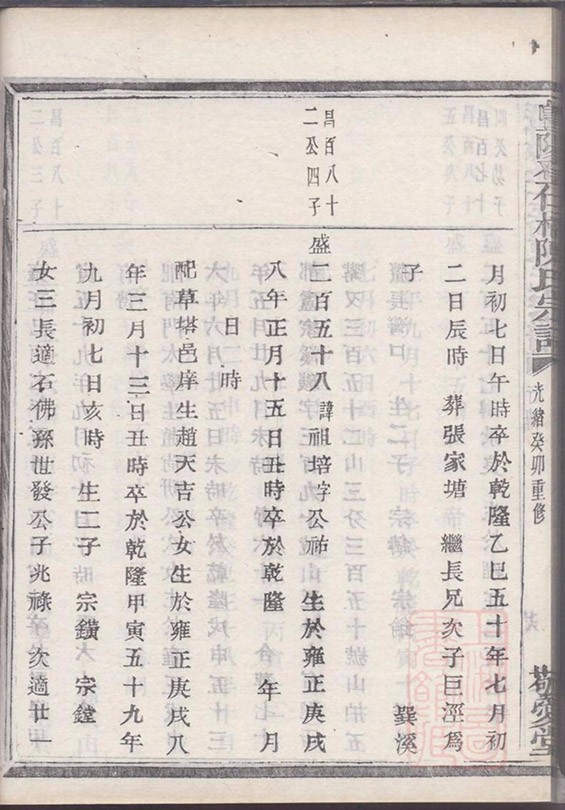 陳氏宗譜
光緒癸卯重修
敬愛堂
月初七日午時卒於乾隆乙巳五十年七月初
二日辰時 葬張家塘 繼長兄次子巨涇為
子 巽溪
昌百八十
二公四子
盛二百五十八 諱祖培字公祐 生於雍正庚戌
八年正月十五日丑時卒於乾隆 年 月
日 時
配草塔邑庠生趙天吉公女生於雍正庚戌八
年三月十三日丑時卒於乾隆甲寅五十九年
九月初七日亥時 生二子 宗鑚 宗鏜
女三長適石佛孫世發公子兆祿 次適廿